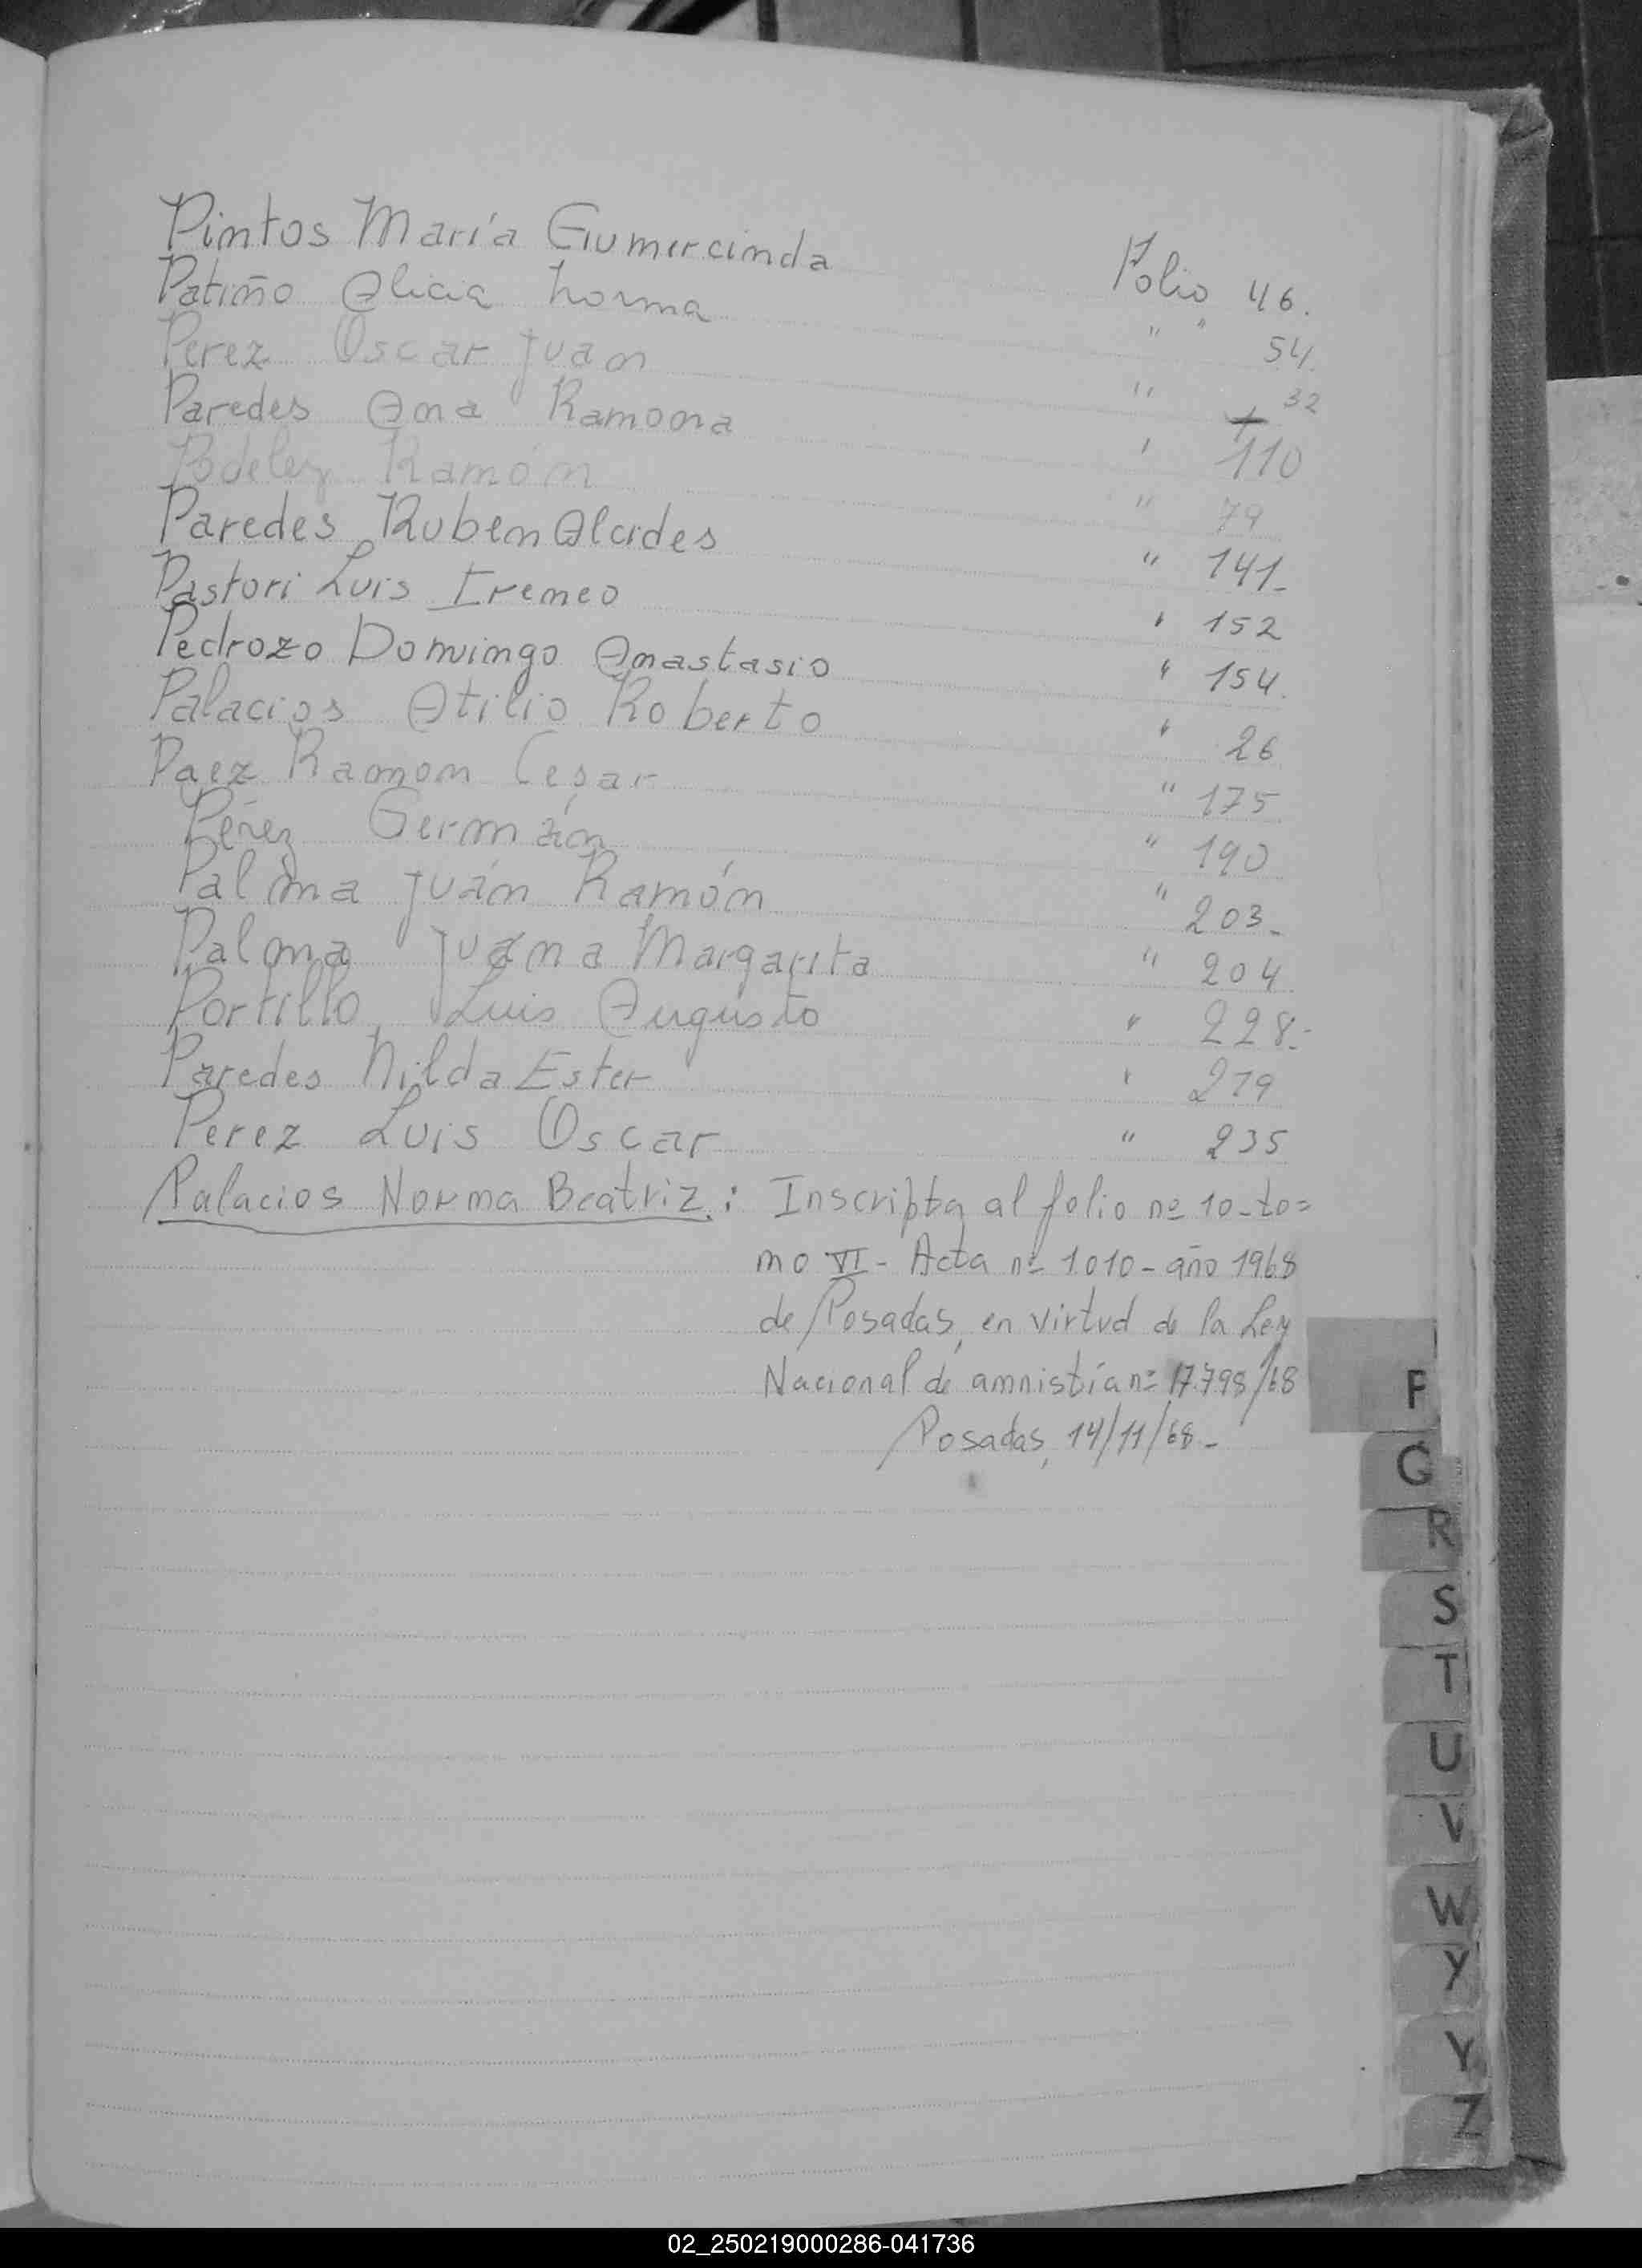 Pintos María Gumercinda Folio 46.
Patiño Alicia Norma " " 54.
Perez Oscar Juan " 32
Paredes Ana Ramona " 110
Ramón " 79
Paredes Ruben Alcides " 141-
Pastori Luis Ireneo " 152
Pedrozo Domingo Anastasio " 154.
Palacios Atilio Roberto " 26
Paez Ramon Cesar " 175
Pérez Germián " 190
Palma Juán Ramón " 203-
Palma Juana Margarita " 204
Portillo Luis Augusto " 228.-
Paredes Nilda Ester " 219
Perez Luis Oscar " 235
Palacios Norma Beatriz.: Inscripta al folio nº 10-to=
mo VI - Acta nº 1010 - año 1968
de Posadas, en virtud de la Ley
Nacional de amnistía nº 17.798/68
Posadas, 14/11/68-
P
Q
R
S
T
U
V
W
Y
Y
Z
02_250219000286-041736